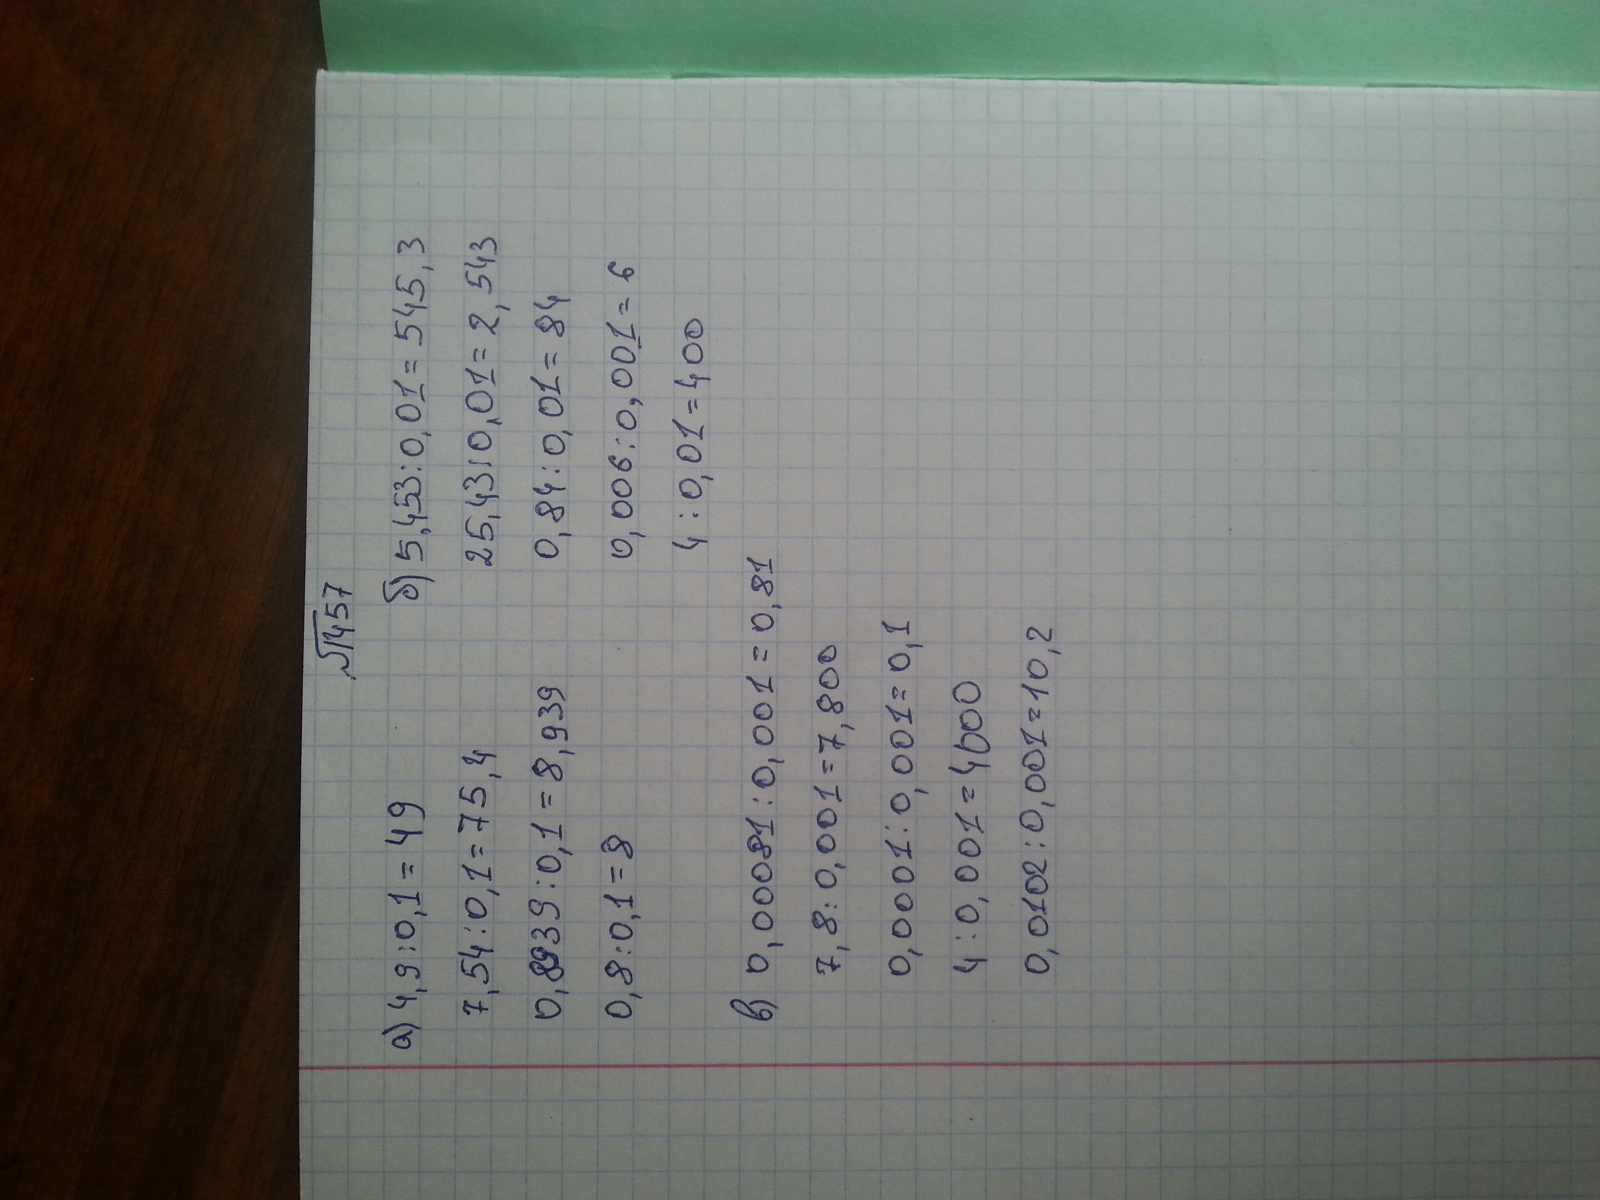 №1457
а) 4,9:0,1=49
7,54:0,1=75,4
0,8939:0,1=8,939
0,8:0,1=8
б) 5,453:0,01=545,3
25,43:0,01=2,543
0,84:0,01=84
0,006:0,001=6
4:0,01=400
в) 0,00081:0,001=0,81
7,8:0,001=7,800
0,0001:0,001=0,1
4:0,001=4000
0,0102:0,001=10,2